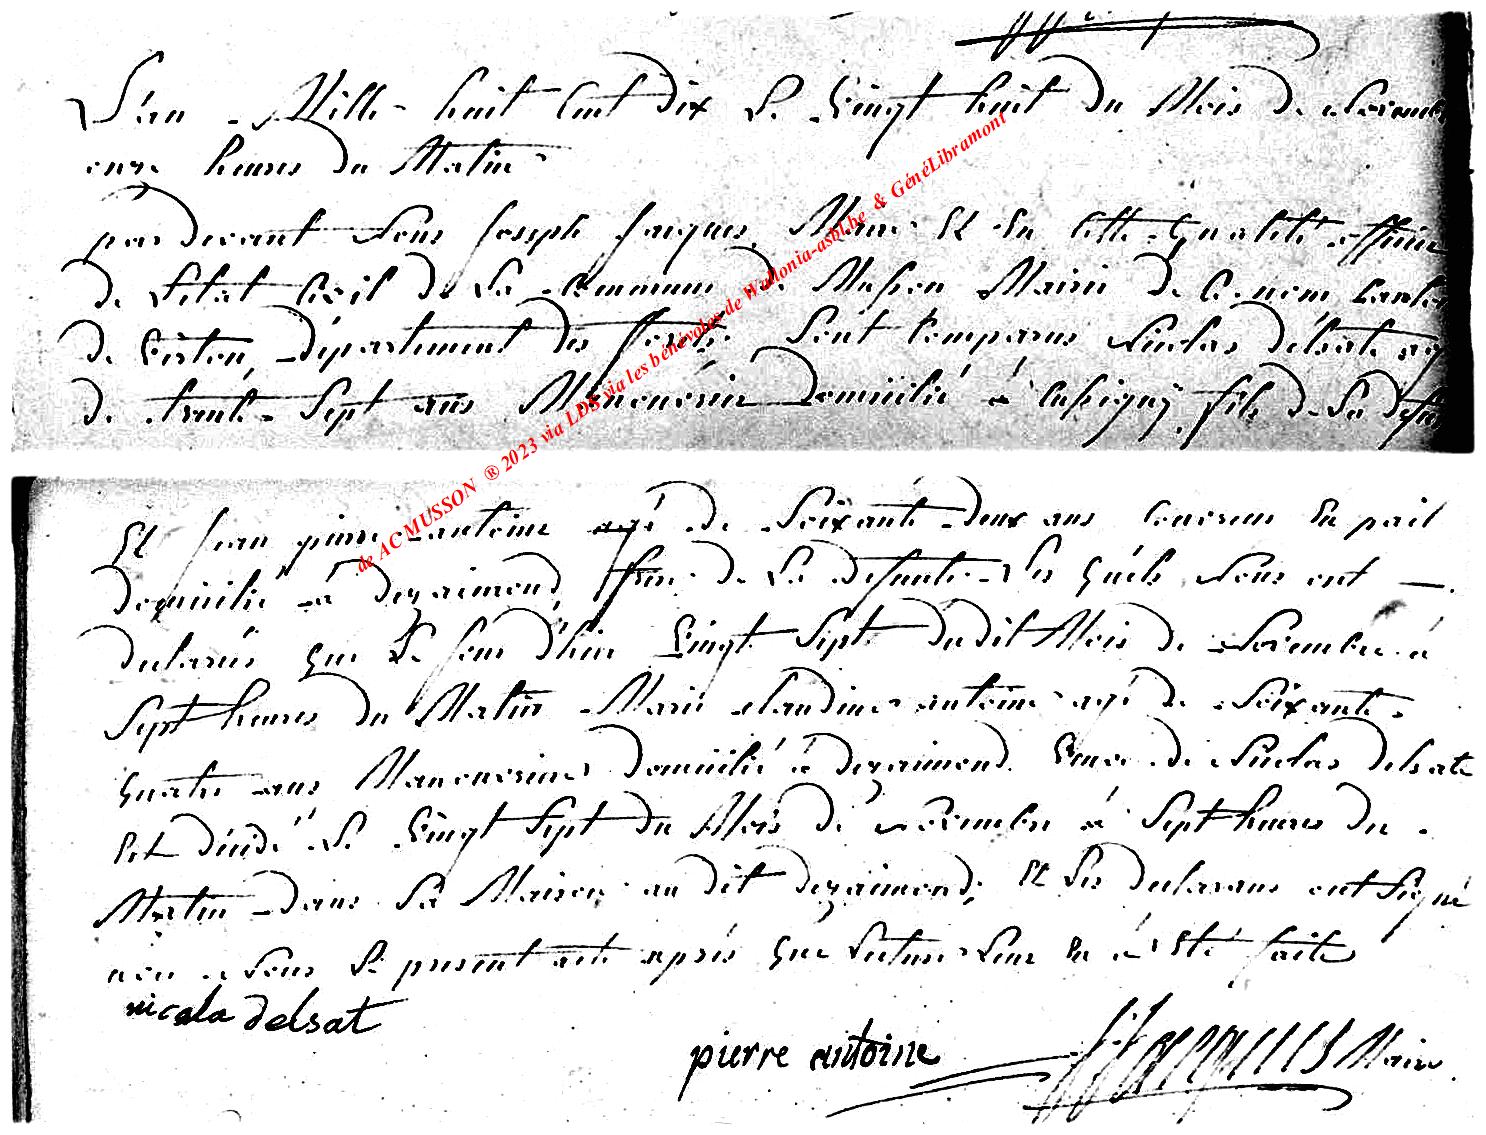 L'an Mille huit Cent dix Le Vingt huit du Mois de Novembre
onze heures du Matin
par devant Nous Joseph Jacques, Maire Et En Cette Qualité officier
de L'état Civil de La Commune de Musson Mairie de Ce nom Canton
de Virton, Département des forêts. Sont Comparus Nicolas delsate agé
de trente Sept ans Manouvrier Domicilié à Cussigny, fils de La défunte
de ACMUSSON ® 2023 via LDS via les bénévoles de Wallonia-asbl.be & GénéLibramont
Et Jean pierre antoine agé de Soixante deux ans Couvreur En pail
Domicilié à degaimond, frere de La defunte Les quels Nous ont —.
declarés que Le Jour d'hier Vingt Sept dudit Mois de Novembre à
Sept heures du Matin Marie claudine antoine agé de Soixante
quatre ans Manouvriere Domicilié à degaimond. Veuve de Nicolas delsate
Est décédé Le Vingt Sept du Mois de Novembre à Sept heures du
Matin Dans Sa Maison au dit degaimond; Et Les Declarans ont Signé
avec Nous Le present acte après que Lecture Leur En à Eté faite
nicola delsat
pierre antoine
JJacques Maire